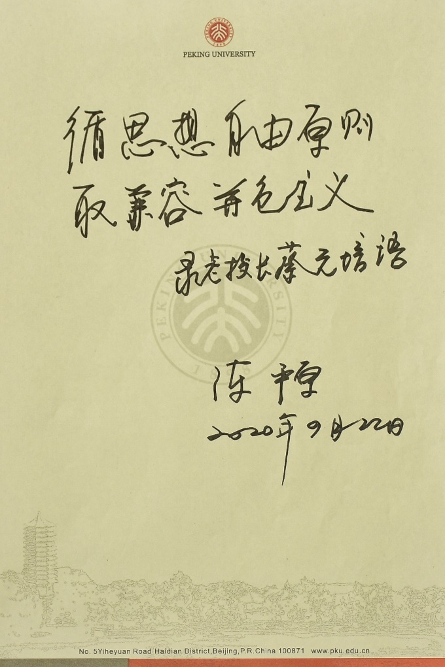 PEKING UNIVERSITY
循思想自由原则
取兼容并包主义
录老校长蔡元培语
陈平原
2020年9月22日
No. 5Yiheyuan Road Haidian District,Beijing,P.R.China 100871 www.pku.edu.cn